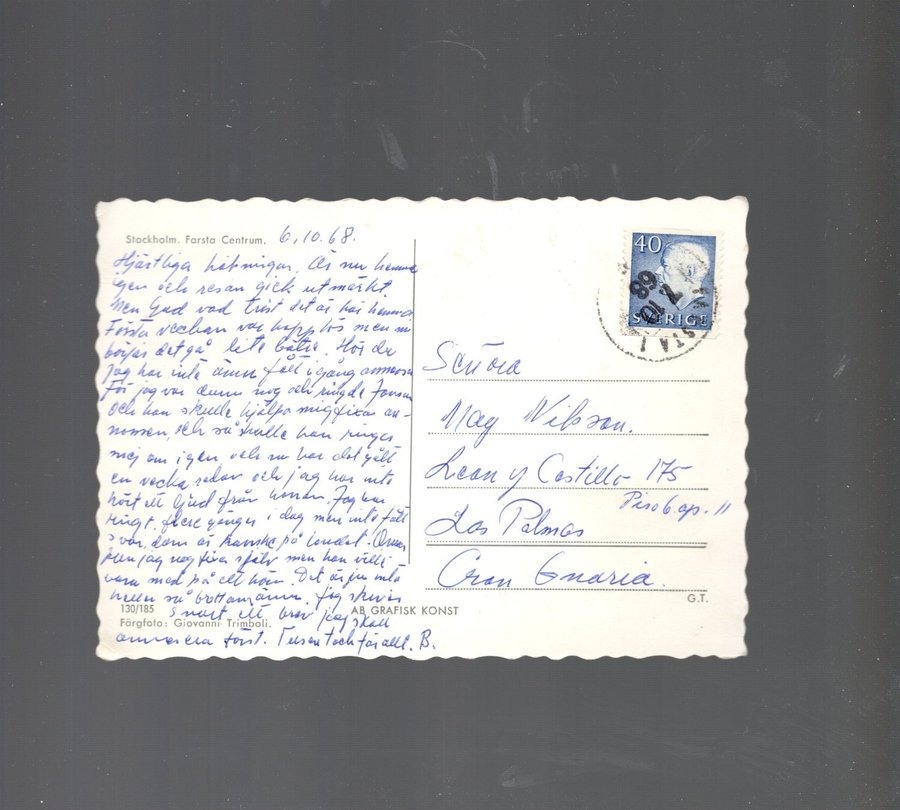 Stockholm. Farsta Centrum. 6.10.68.
Hjärtliga hälsningar. Är nu hemma
igen och resan gick utmärkt.
Men Gud vad trist det är här hemma
Första veckan var hopplös men nu
börjar det gå lite bättre. Hör du
jag har inte ännu fått igång annonsen
För jag var dum nog och ringde
och han skulle hjälpa mig fixa an-
nonsen, och så skulle han ringa
mej om igen och nu har det gått
en vecka sedan och jag har inte
hört ett ljud från honom. Jag har
ringt flere gånger i dag men inte fått
svar, dom är kanske på landet.
kan jag nog fixa själv men han ville
vara med på ett hörn. Det är ju inte
heller så Jag skriver
snart ett brev jag skall
annonsera först. Tusen tack för allt. B.
130/185
AB GRAFISK KONST
Färgfoto: Giovanni Trimboli.
40
SVERIGE
7.10
68
STA 1
Señora
May Nilsson.
Leon y Castillo 175
Piso 6. ap. 11
Las Palmas
Gran Gnaria.
G.T.